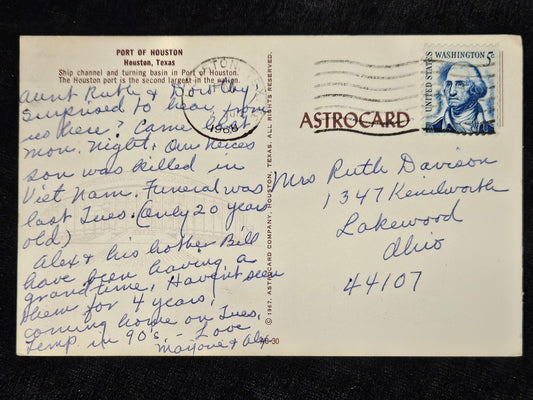 PORT OF HOUSTON
Houston, Texas
Ship channel and turning basin in Port of Houston.
The Houston port is the second largest in the nation.
Aunt Ruth & Dorothy;
Surprised to hear from
us here? Came last
mon. night. Our neices
son was killed in
Viet Nam. Funeral was
last Tues. (only 20 years
old)
Alex & his bother Bill
have been having a
grand time, Haven't seen
them for 4 years,
coming home on Tues.
Temp in 90's. - Love
Marjorie & Alex
HOUSTON
1968
© 1967, ASTROCARD COMPANY, HOUSTON, TEXAS. ALL RIGHTS RESERVED.
ASTROCARD
UNITED STATES
WASHINGTON 5¢
Mrs Ruth Davison
1347 Kenilworth
Lakewood
Ohio
44107